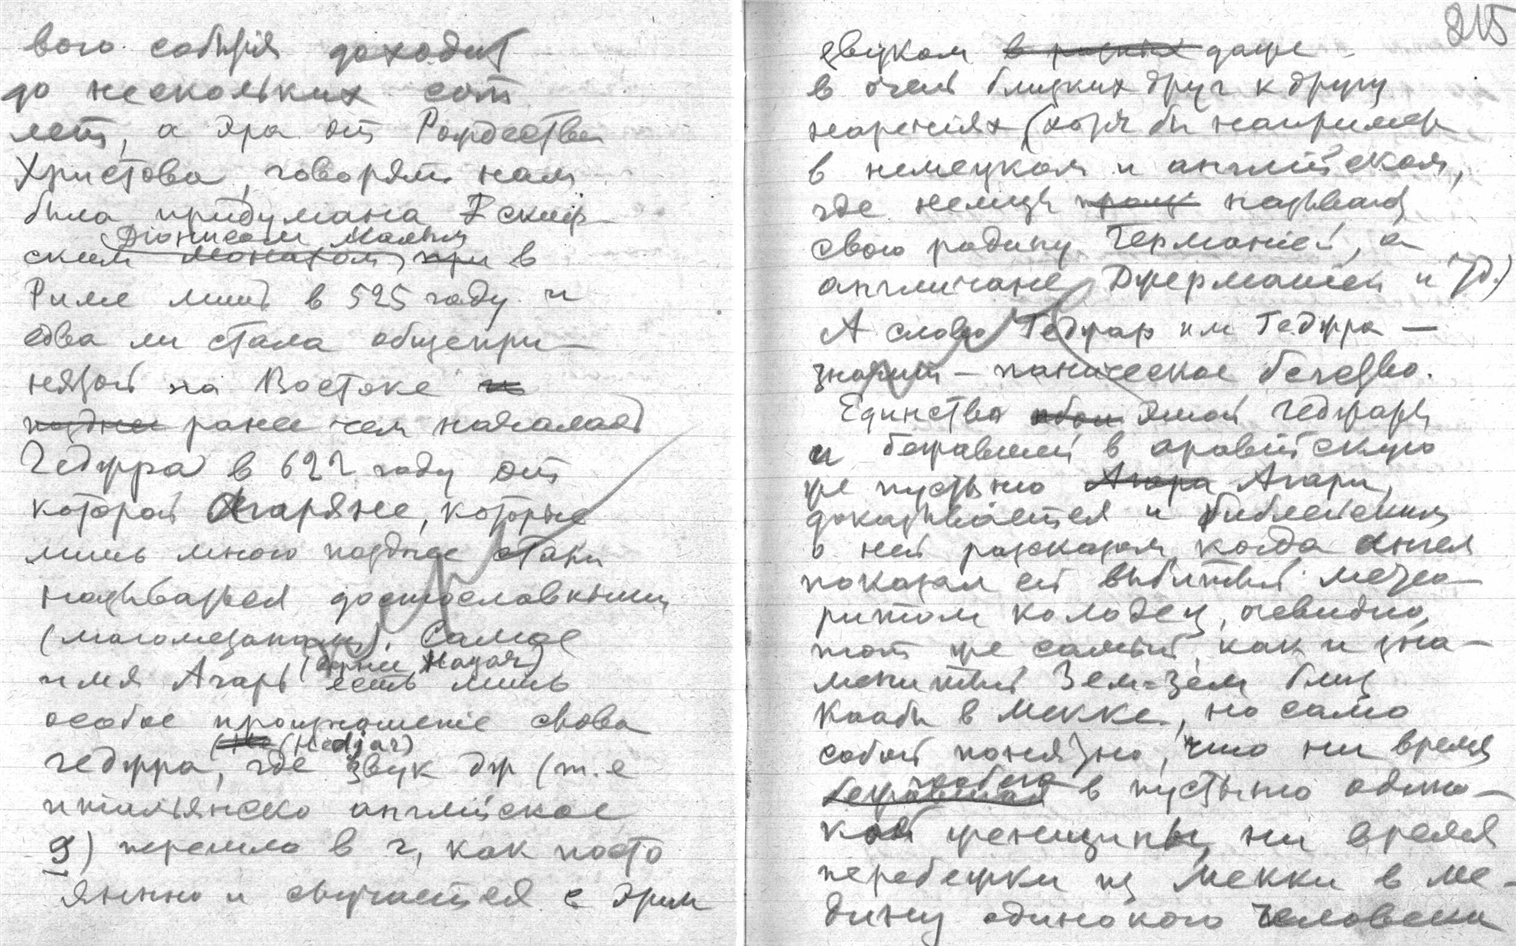 вого событія доходит
до нескольких сот
лет, а эра от Рождества
Христова, говорят нам
была придумана Р скиф-
Діонисом Малым
ским монахом, при в
Риме лишь в 525 году и
едва ли стала общепри-
нятой на Востоке и
позднее ранее чем началась
Геджра в 622 году от
которой Агаряне, которые
лишь много позднее стали
называться достославными
(магометанами). Самое
(выше Hagar)
имя Агарь есть лишь
особое произношеніе слова
(He (Hedjar)
геджра, где звук дж (т.е
итальянско англійское
g) перешло в г, как посто
янно и случается с этим
215
звуком в разных даже
в очень близких друг к другу
наречіях (хотя бы например
в немецком и англійском,
где немцы назывaют
свою родину Германіей, а
англичане Джерманіей и тд.)
А слово Геджар или Геджра —
значит — паническое бегство.
Единство этой геджары
и бежавшей в аравійскую
же пустыню Агара Агари,
доказывается и библейским
о ней разсказом, когда ангел
показал ей выбитый метео-
ритом колодец, очевидно,
тот же самый, как и зна-
менитый Зем-Зем близ
Каабы в Мекке, но само
собой понятно, что ни время
побега
бежавшая в пустыню одино-
кой женщины, ни время
перебежки из Мекки в Ме-
дину одинокого человека